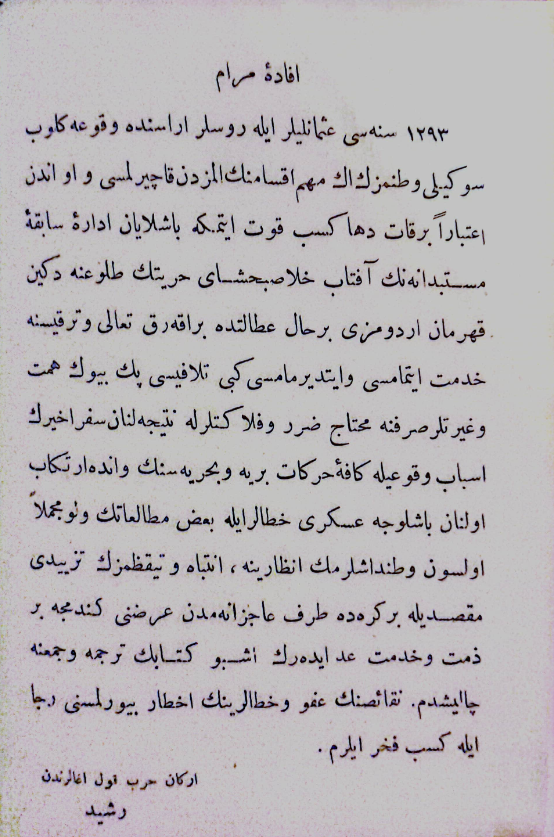 افادهٔ مرام
١٢٩٣ سنه‌سى عثمانليلر ايله روسلر اراسنده وقوعه كلوب
سوكيلى وطنمزك اك مهم اقسامنك المزدن قاچيرلمسى و او اندن
اعتباراً برقات دها كسب قوت ايتمكه باشلايان ادارهٔ سابقهٔ
مستبدانه‌نك آفتاب خلاصبخشاى حريتك طلوعنه دكين
قهرمان اردومزى برحال عطالتده براقه‌رق تعالى وترقيسنه
خدمت ايتمامسى وايتديرمامسى كبى تلافيسى پك بيوك همت
وغيرتلر صرفنه محتاج ضرر وفلاكتلرله نتيجه‌لنان سفر اخيرك
اسباب وقوعيله كافهٔ حركات بريه وبحريه‌سنك واندە ارتكاب
اولنان باشلوجه عسكرى خطالرايله بعض مطالعاتك ولومجملاً
اولسون وطنداشلرمك انظارينه ، انتباه وتيقظمزك تزييدى
مقصديله بركره‌ده طرف عاجزانه‌مدن عرضنى كندمجه بر
ذمت وخدمت عد ايده‌رك اشبو كتابك ترجمه وجمعنه
چاليشدم. نقائصنك عفو وخطالرينك اخطار بيورلمسنى رجا
ايله كسب فخر ايلرم .
اركان حرب قول اغالرندن
رشيد